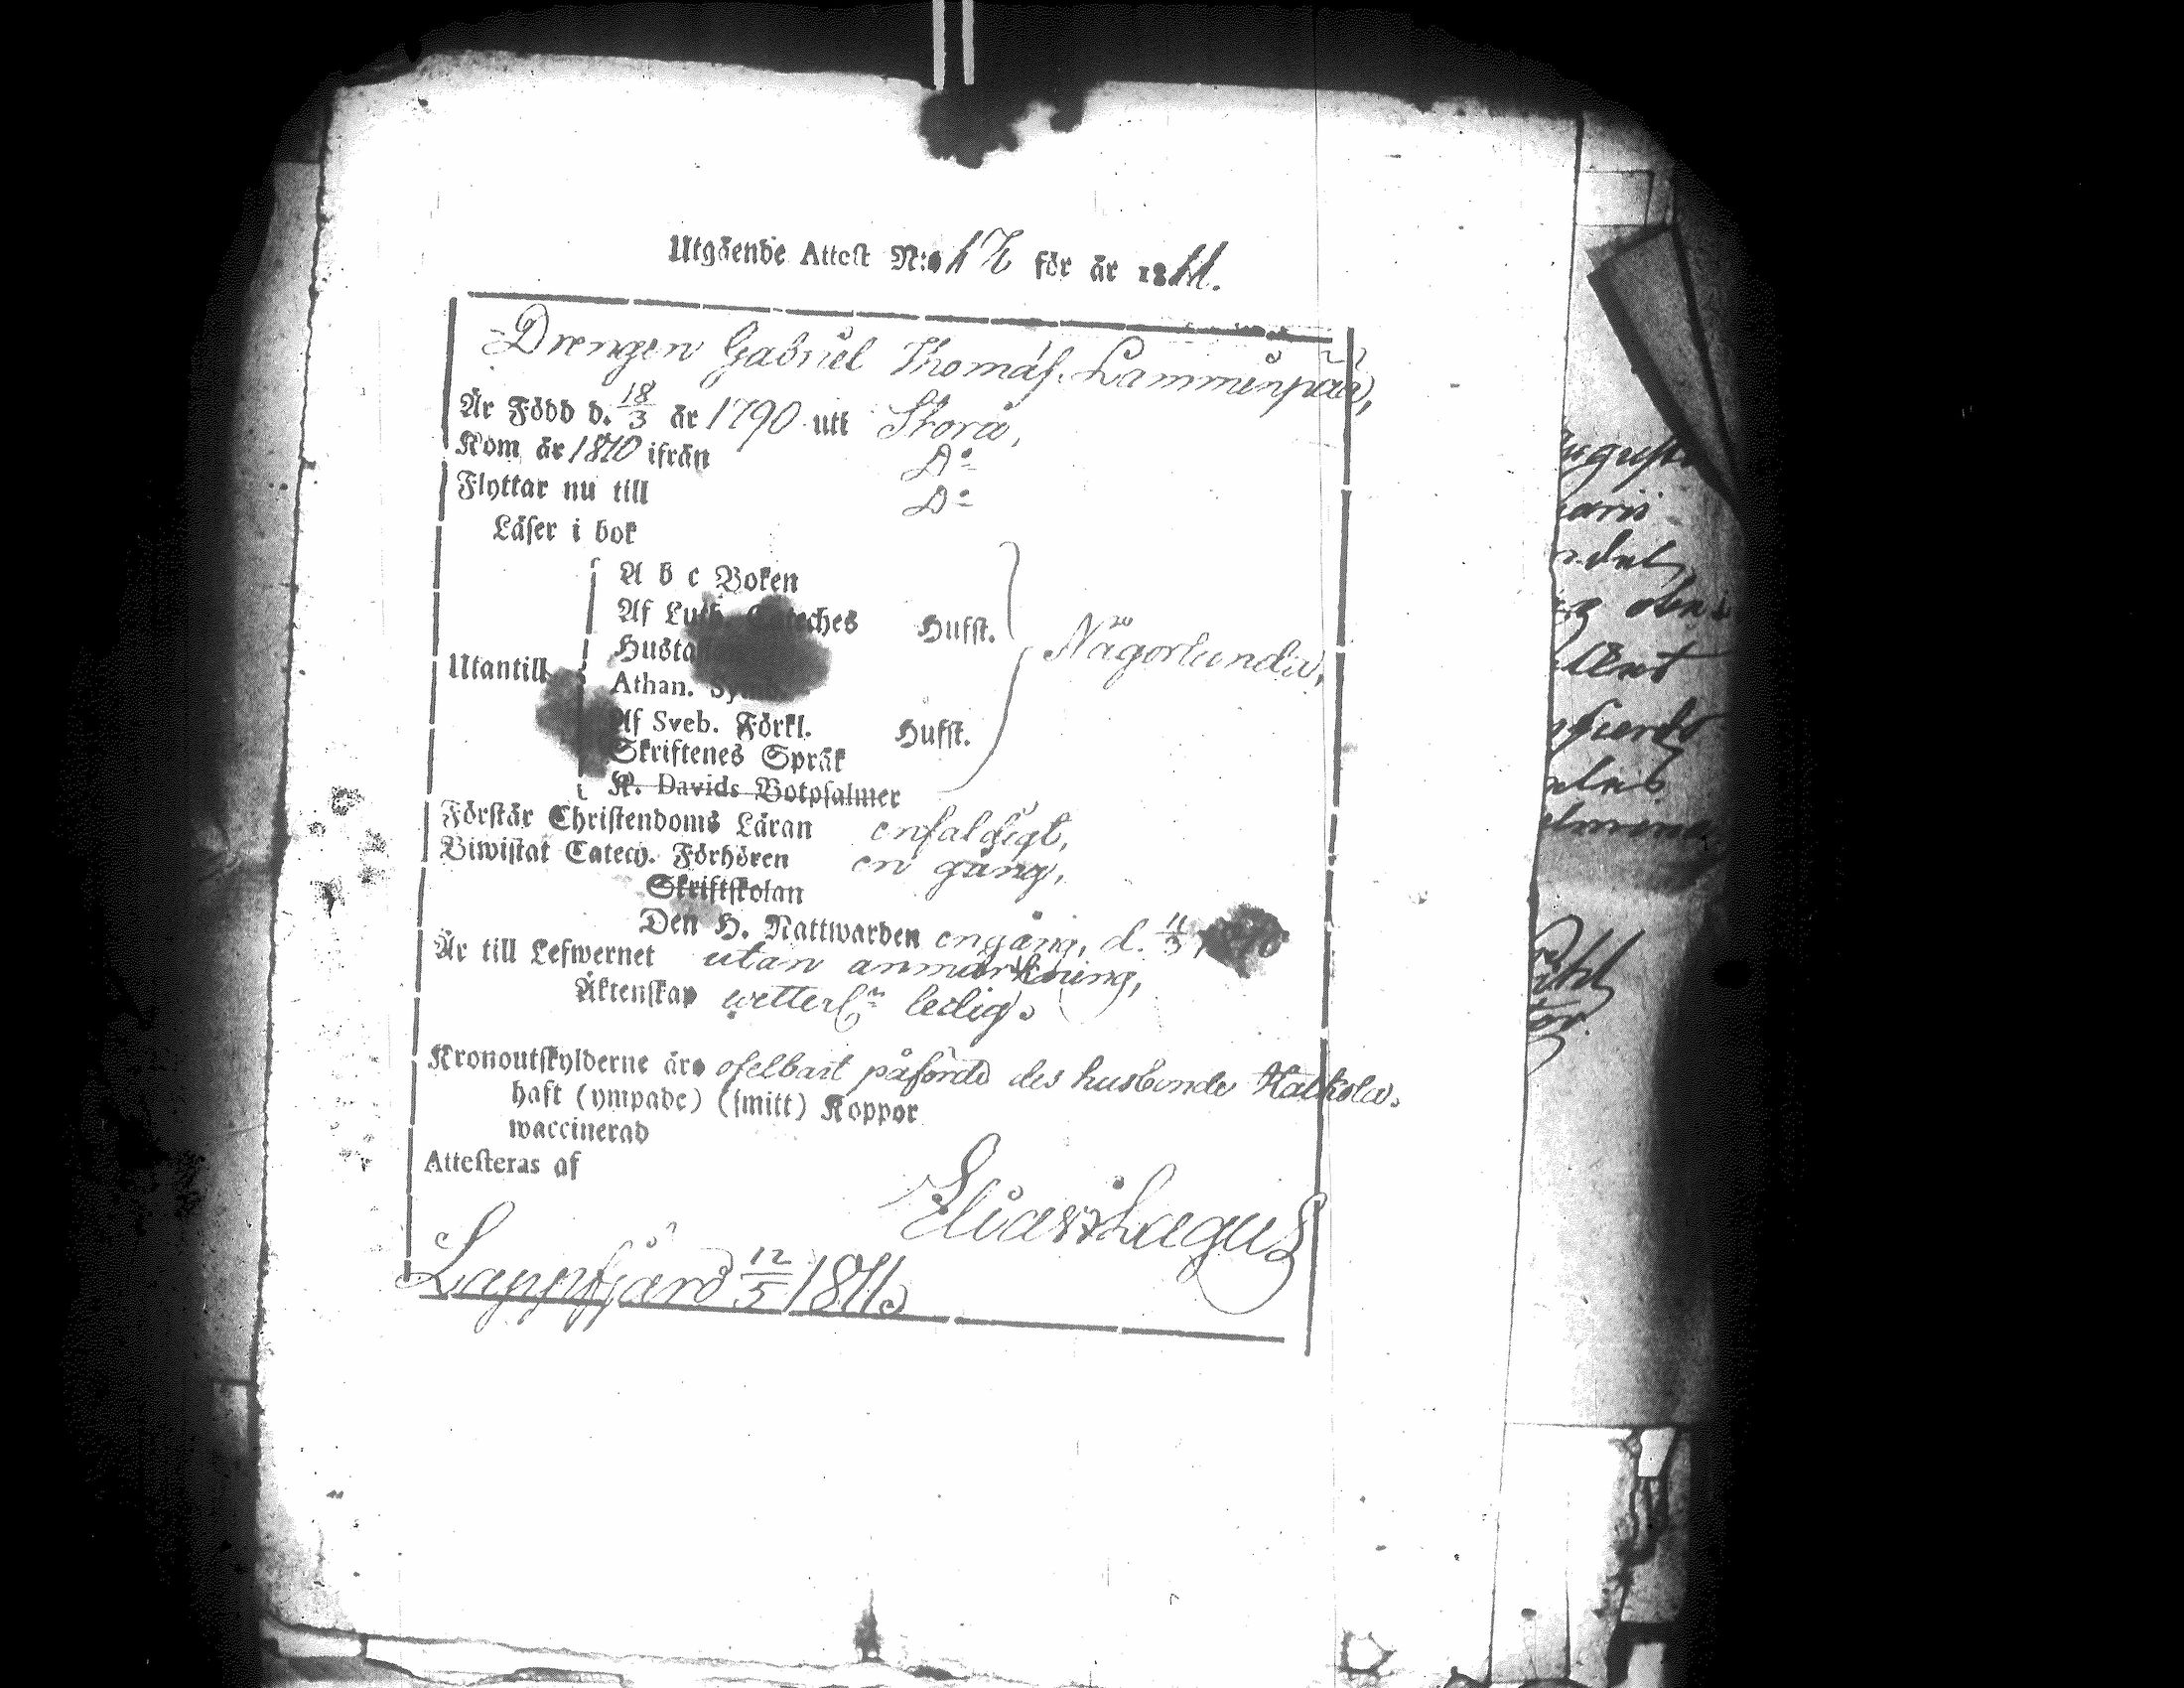 Utgående Attest N:o 17 för år 1811.
Drengen Gabriel Thomæs. Lamminpää,
Är Född d. 18/3 år 1790 uti Storå,
Kom år 1810 ifrån D:o
Flyttar nu till D:o
Läser i bok
A b c Boken
Af Luth. Cateches Hufst.
Husta
Någorlunda,
Utantill
Athan. Sy
Af Sveb. Förkl. Hufst.
Skriftenes Språk
K. Davids Botpsalmer
Förstår Christendoms Läran enfaldigt,
Biwistat Catech. Förhören en gång,
Skriftskolan
Den H. Nattwarden en gång, d.
Är till Lefwernet utan anmärkning,
Äktenskap wetterl:n ledig.
Kronoutskylderne äro ofelbart påförde des husbonde
haft (ympade) (smitt) Koppor
waccinerad
Attesteras af
Elias Lagus
Lappfjärd 12/5 1811.